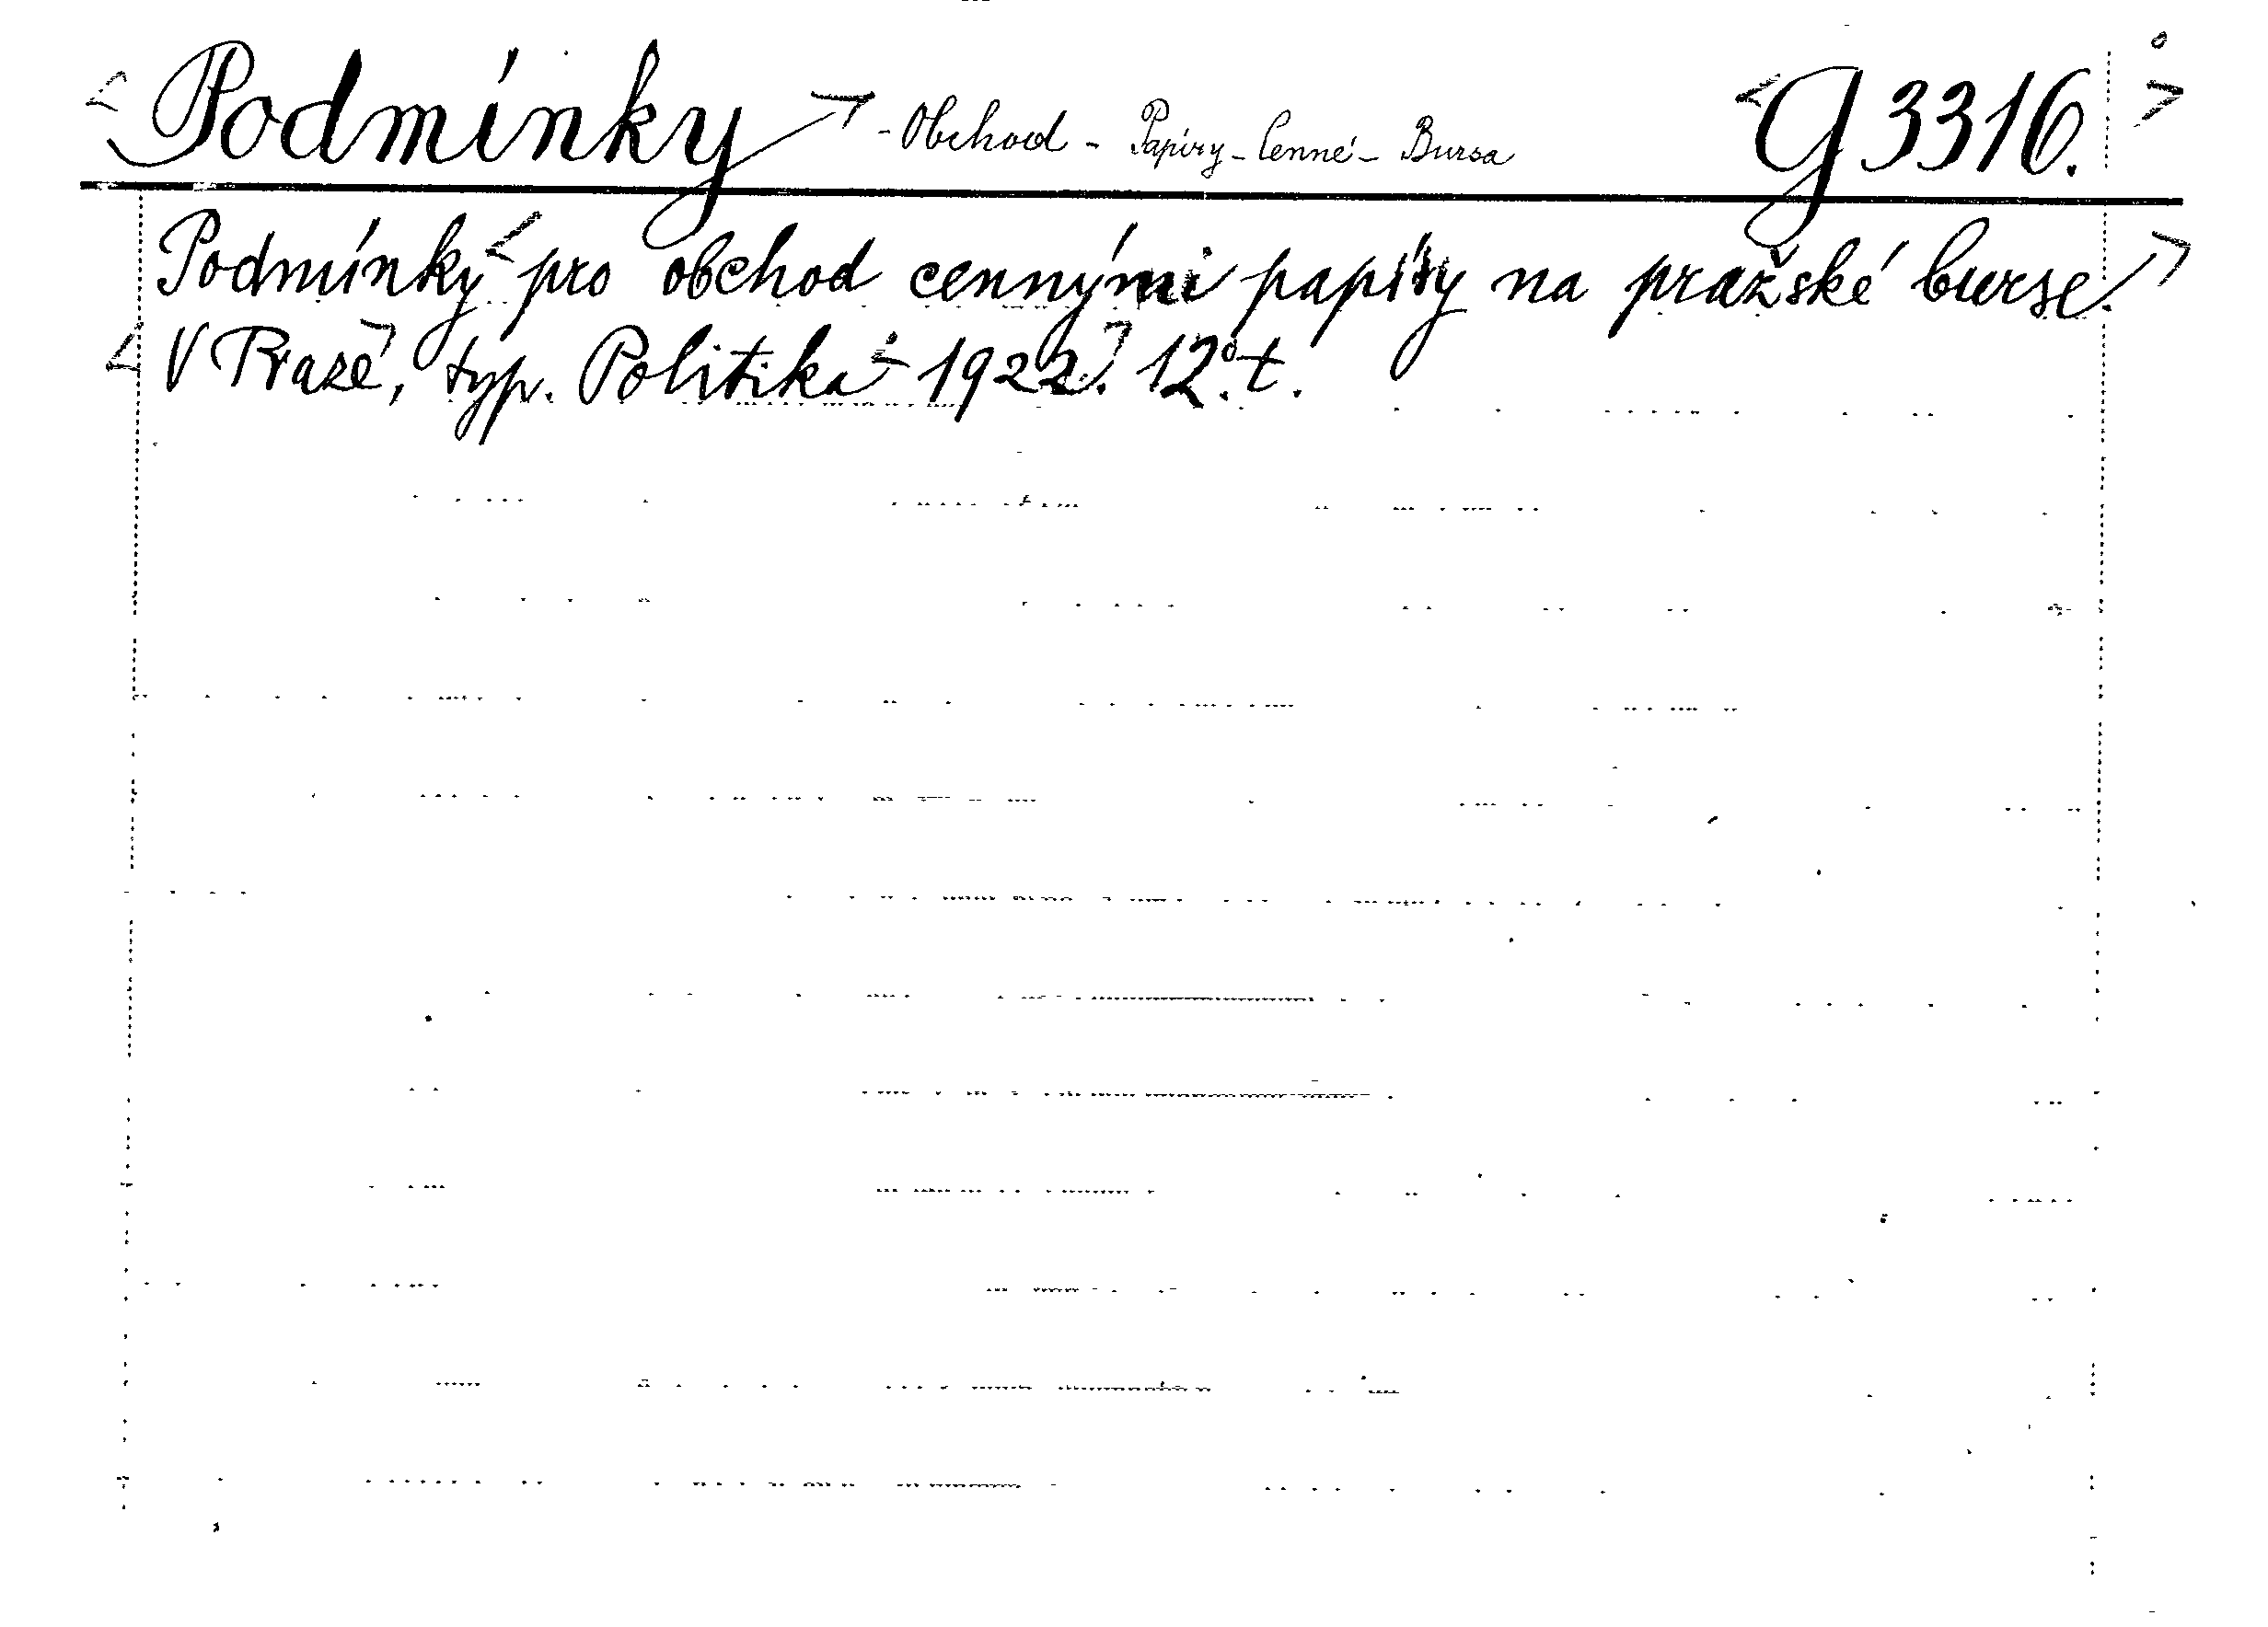 Podmínky - Obchod - Papíry - Cenné - Bursa G 3316.
Podmínky pro obchod cennými papíry na pražské burse.
V Praze, typ. Politika 1922. 12°. t.